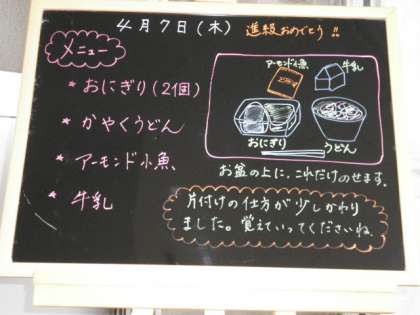 4月7日(木) 進級おめでとう!!
メニュー
* おにぎり(2個)
* かやくうどん
* アーモンド小魚
* 牛乳
アーモンド小魚
牛乳
おにぎり
うどん
お盆の上に、これだけのせます。
片付けの仕方が少しかわり
ました。覚えていってくださいね。